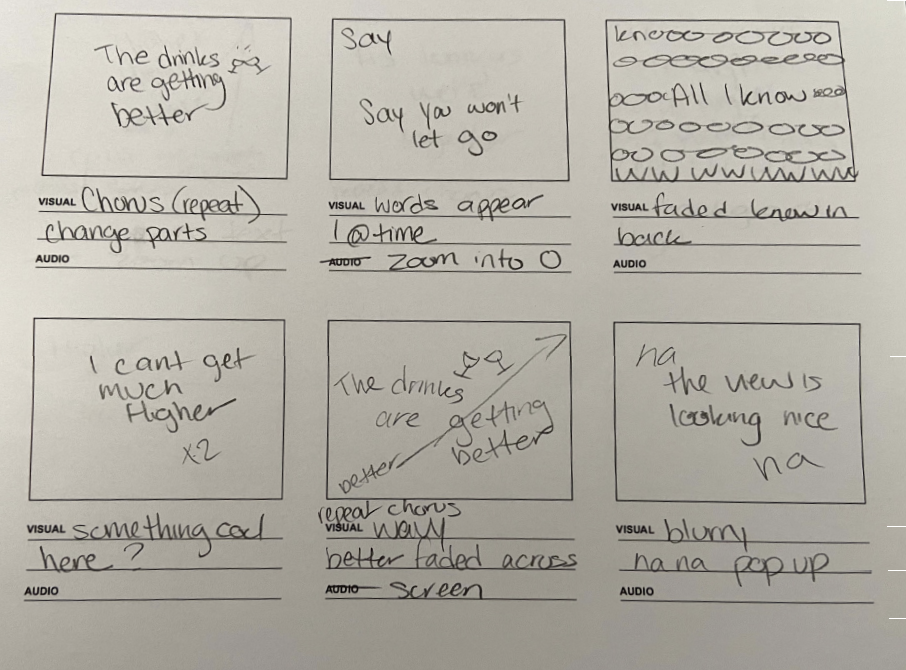 The drinks
are getting
better
VISUAL Chorus (repeat)
change parts
AUDIO
Say
Say you won't
let go
VISUAL words appear
1 @ time
AUDIO zoom into O
knooooooooo
All I know
VISUAL faded know in
back
AUDIO
I cant get
much
Higher
x2
VISUAL something cool
here?
AUDIO
The drinks
are getting
better
better
repeat chorus
VISUAL wavy
better faded across
AUDIO screen
na
the view is
looking nice
na
VISUAL blurry
na na pop up
AUDIO